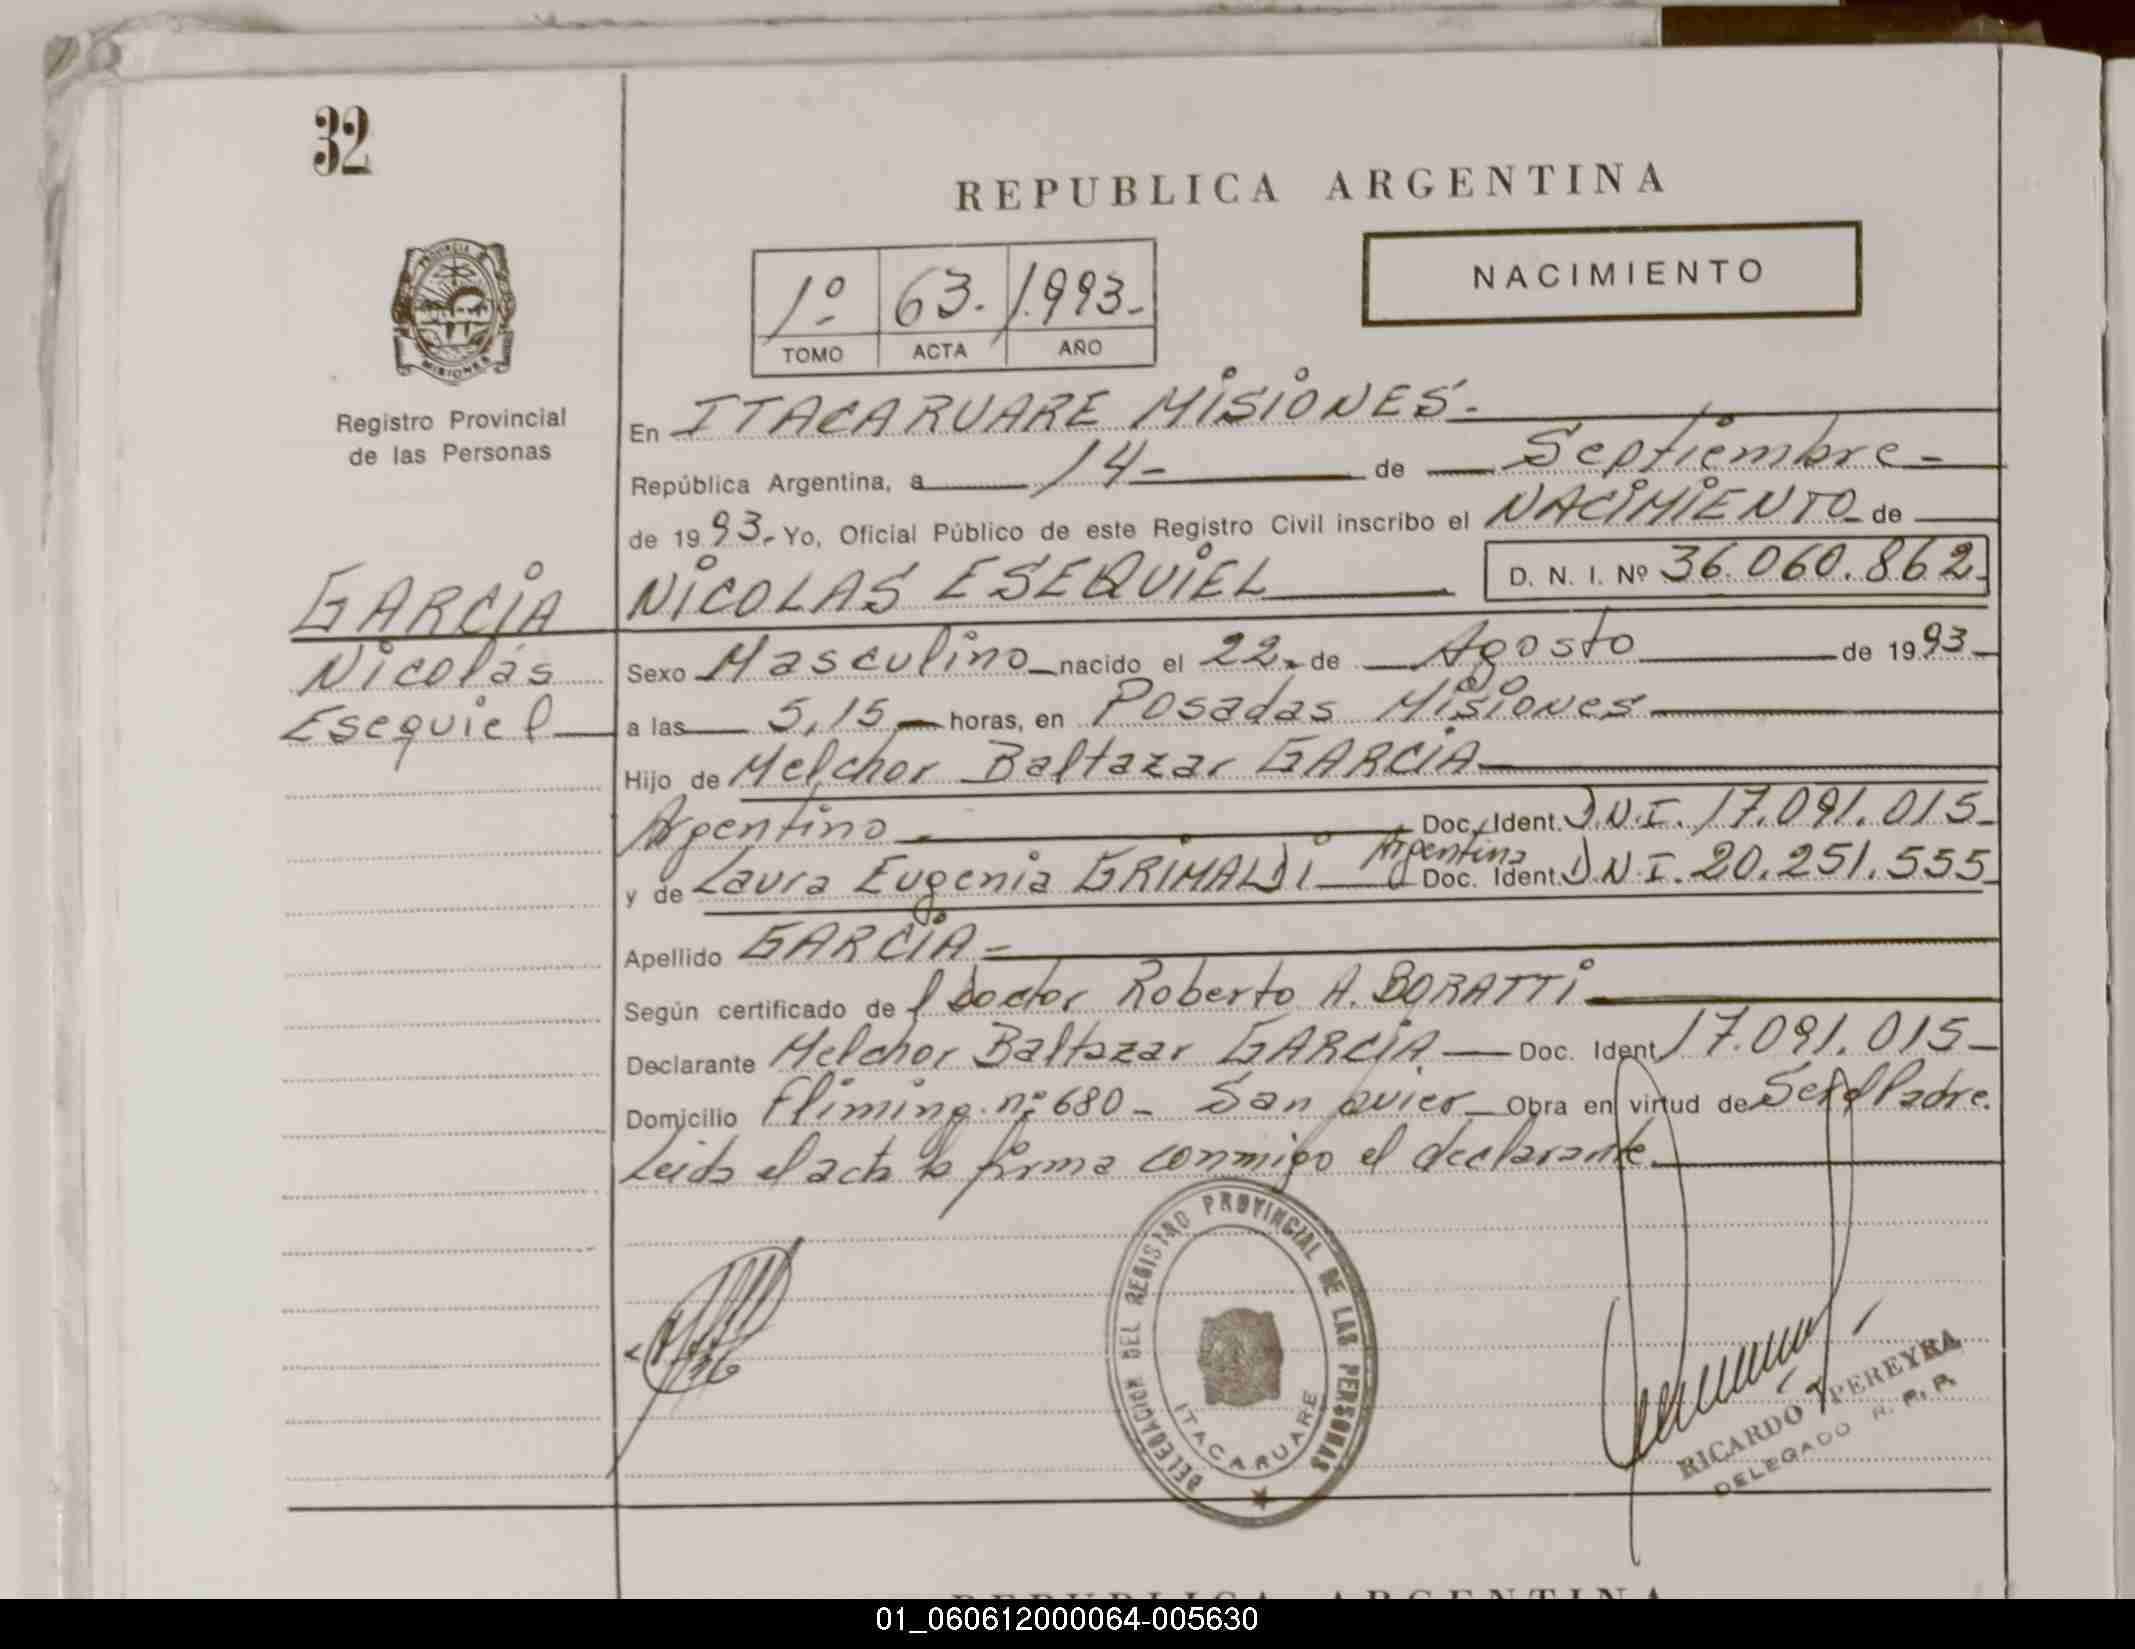 32
REPUBLICA ARGENTINA
NACIMIENTO
1º 63. 1.993.-
TOMO ACTA AÑO
PROVINCIA DE
MISIONES
Registro Provincial
de las Personas
En ITACARUARE MISIONES.-
República Argentina, a 14- de Septiembre-
de 1993.- Yo, Oficial Público de este Registro Civil inscribo el NACIMIENTO de
GARCIA
Nicolás
Esequiel
NICOLAS ESEQUIEL D. N. I. Nº 36.060.862.
Sexo Masculino nacido el 22.- de Agosto de 1993
a las 5,15 horas, en Posadas Misiones
Hijo de Melchor Baltazar GARCIA
Argentino.- Doc. Ident. D.N.I. 17.091.015-
Argentina
y de Laura Eugenia GRIMALDI Doc. Ident. D.N.I. 20.251.555
Apellido GARCIA-
Según certificado de l doctor Roberto A. BORATTI
Declarante Melchor Baltazar GARCIA Doc. Ident 17.091.015-
Domicilio Fliming. nº 680- San Javier Obra en virtud de Ser el Padre.
Leida el acta la firma conmigo el declarante.
DELEGACION DEL REGISTRO PROVINCIAL DE LAS PERSONAS
ITACARUARE
RICARDO PEREYRA
DELEGADO R. P. P.
REPUBLICA ARGENTINA
01_060612000064-005630